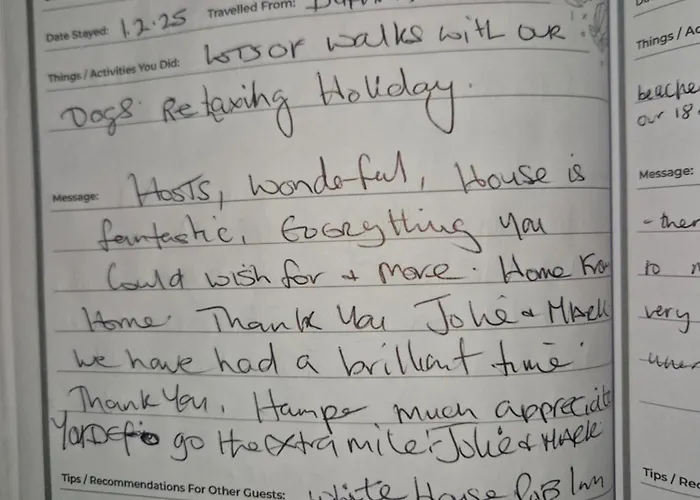 Date Stayed: 1.2.25 Travelled From:
Things / Activities You Did: Lots of walks with our
Dogs. Relaxing Holiday.
Message: Hosts, wonderful, House is
fantastic, Everything You
Could wish for + more. Home From
Home. Thank You Jolie + Mark
we have had a brilliant time.
Thank You, Hamper much appreciate
You Def go the extra mile. Jolie + Mark
Tips / Recommendations For Other Guests: White House Pub Inn
Things / Ac
beache
our 18
Message:
to
very
Tips / Rec